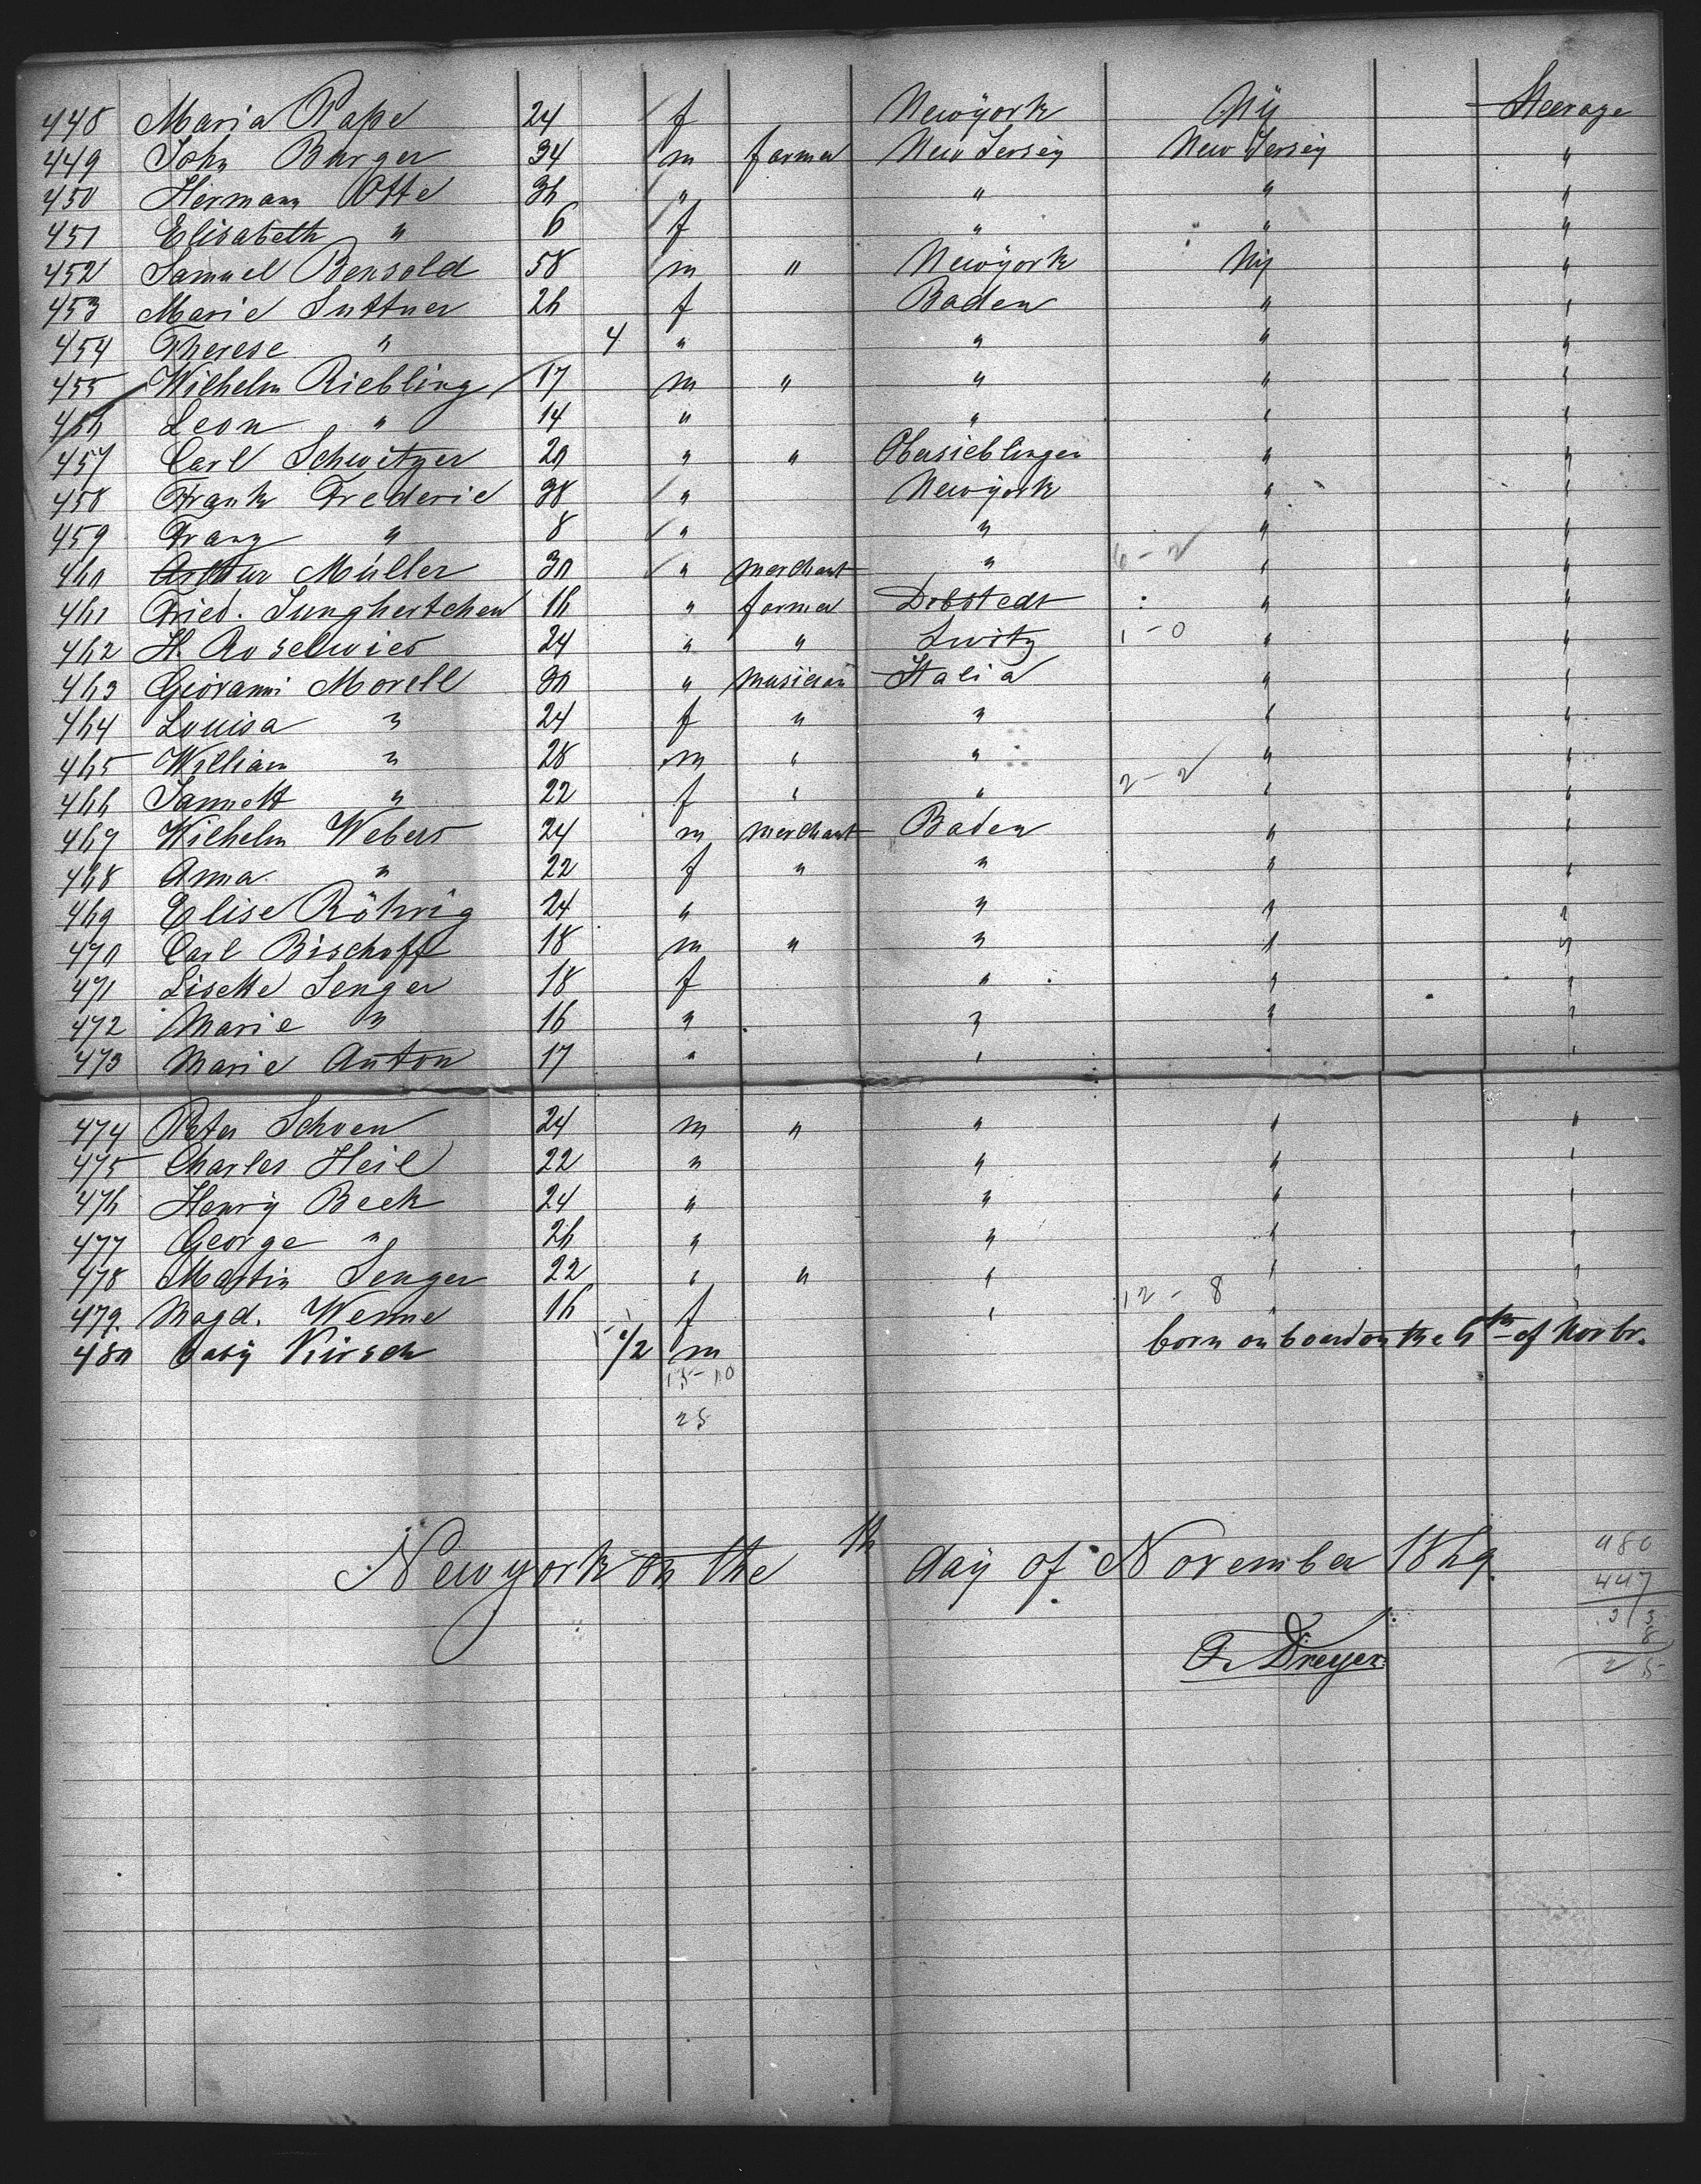 448 Maria Pape 24 f Newyork Ny Steerage
449 John Burger 34 m farmer New Jersey New Jersey "
450 Hermann Otte 36 " " " "
451 Elisabeth " 6 f " " "
452 Samuel Bensold 58 m " Newyork Ny "
453 Marie Suttner 26 f Baden " "
454 Therese " 4 " " " "
455 Wilhelm Riebling 17 m " " " "
456 Leon " 14 " " " "
457 Carl Schwitzer 20 " " Obersieblingen " "
458 Frank Frederic 38 " Newyork " "
459 Franz " 8 " " " "
460 Arthur Müller 30 " merchant " 6-2 " "
461 Fried. Junghertchen 16 " farmer Dobstedt " "
462 H. Roselwies 24 " " Switz 1-0 " "
463 Giovanni Morell 30 " musician Italia " "
464 Louisa " 24 f " " " "
465 William " 28 m " " " "
466 Jannett " 22 f " " 2-2 " "
467 Wilhelm Webers 24 m merchant Baden " "
468 Anna " 22 f " " " "
469 Elise Röhrig 24 " " " "
470 Carl Bischoff 18 m " " " "
471 Lisette Senger 18 f " " "
472 Marie " 16 " " " "
473 Marie Anton 17 " " " "
474 Peter Schoen 24 m " " " "
475 Charles Heil 22 " " " "
476 Henry Beck 24 " " " "
477 George " 26 " " " "
478 Martin Senger 22 " " " " "
479. Magd. Wenne 16 f " 12-8 " "
480 Baby Kirsch 1/2 m born on board on the 6th of Novbr.
15-10
25
Newyork on the th day of November 1869.
480
447
33
8
25
F. Dreyer